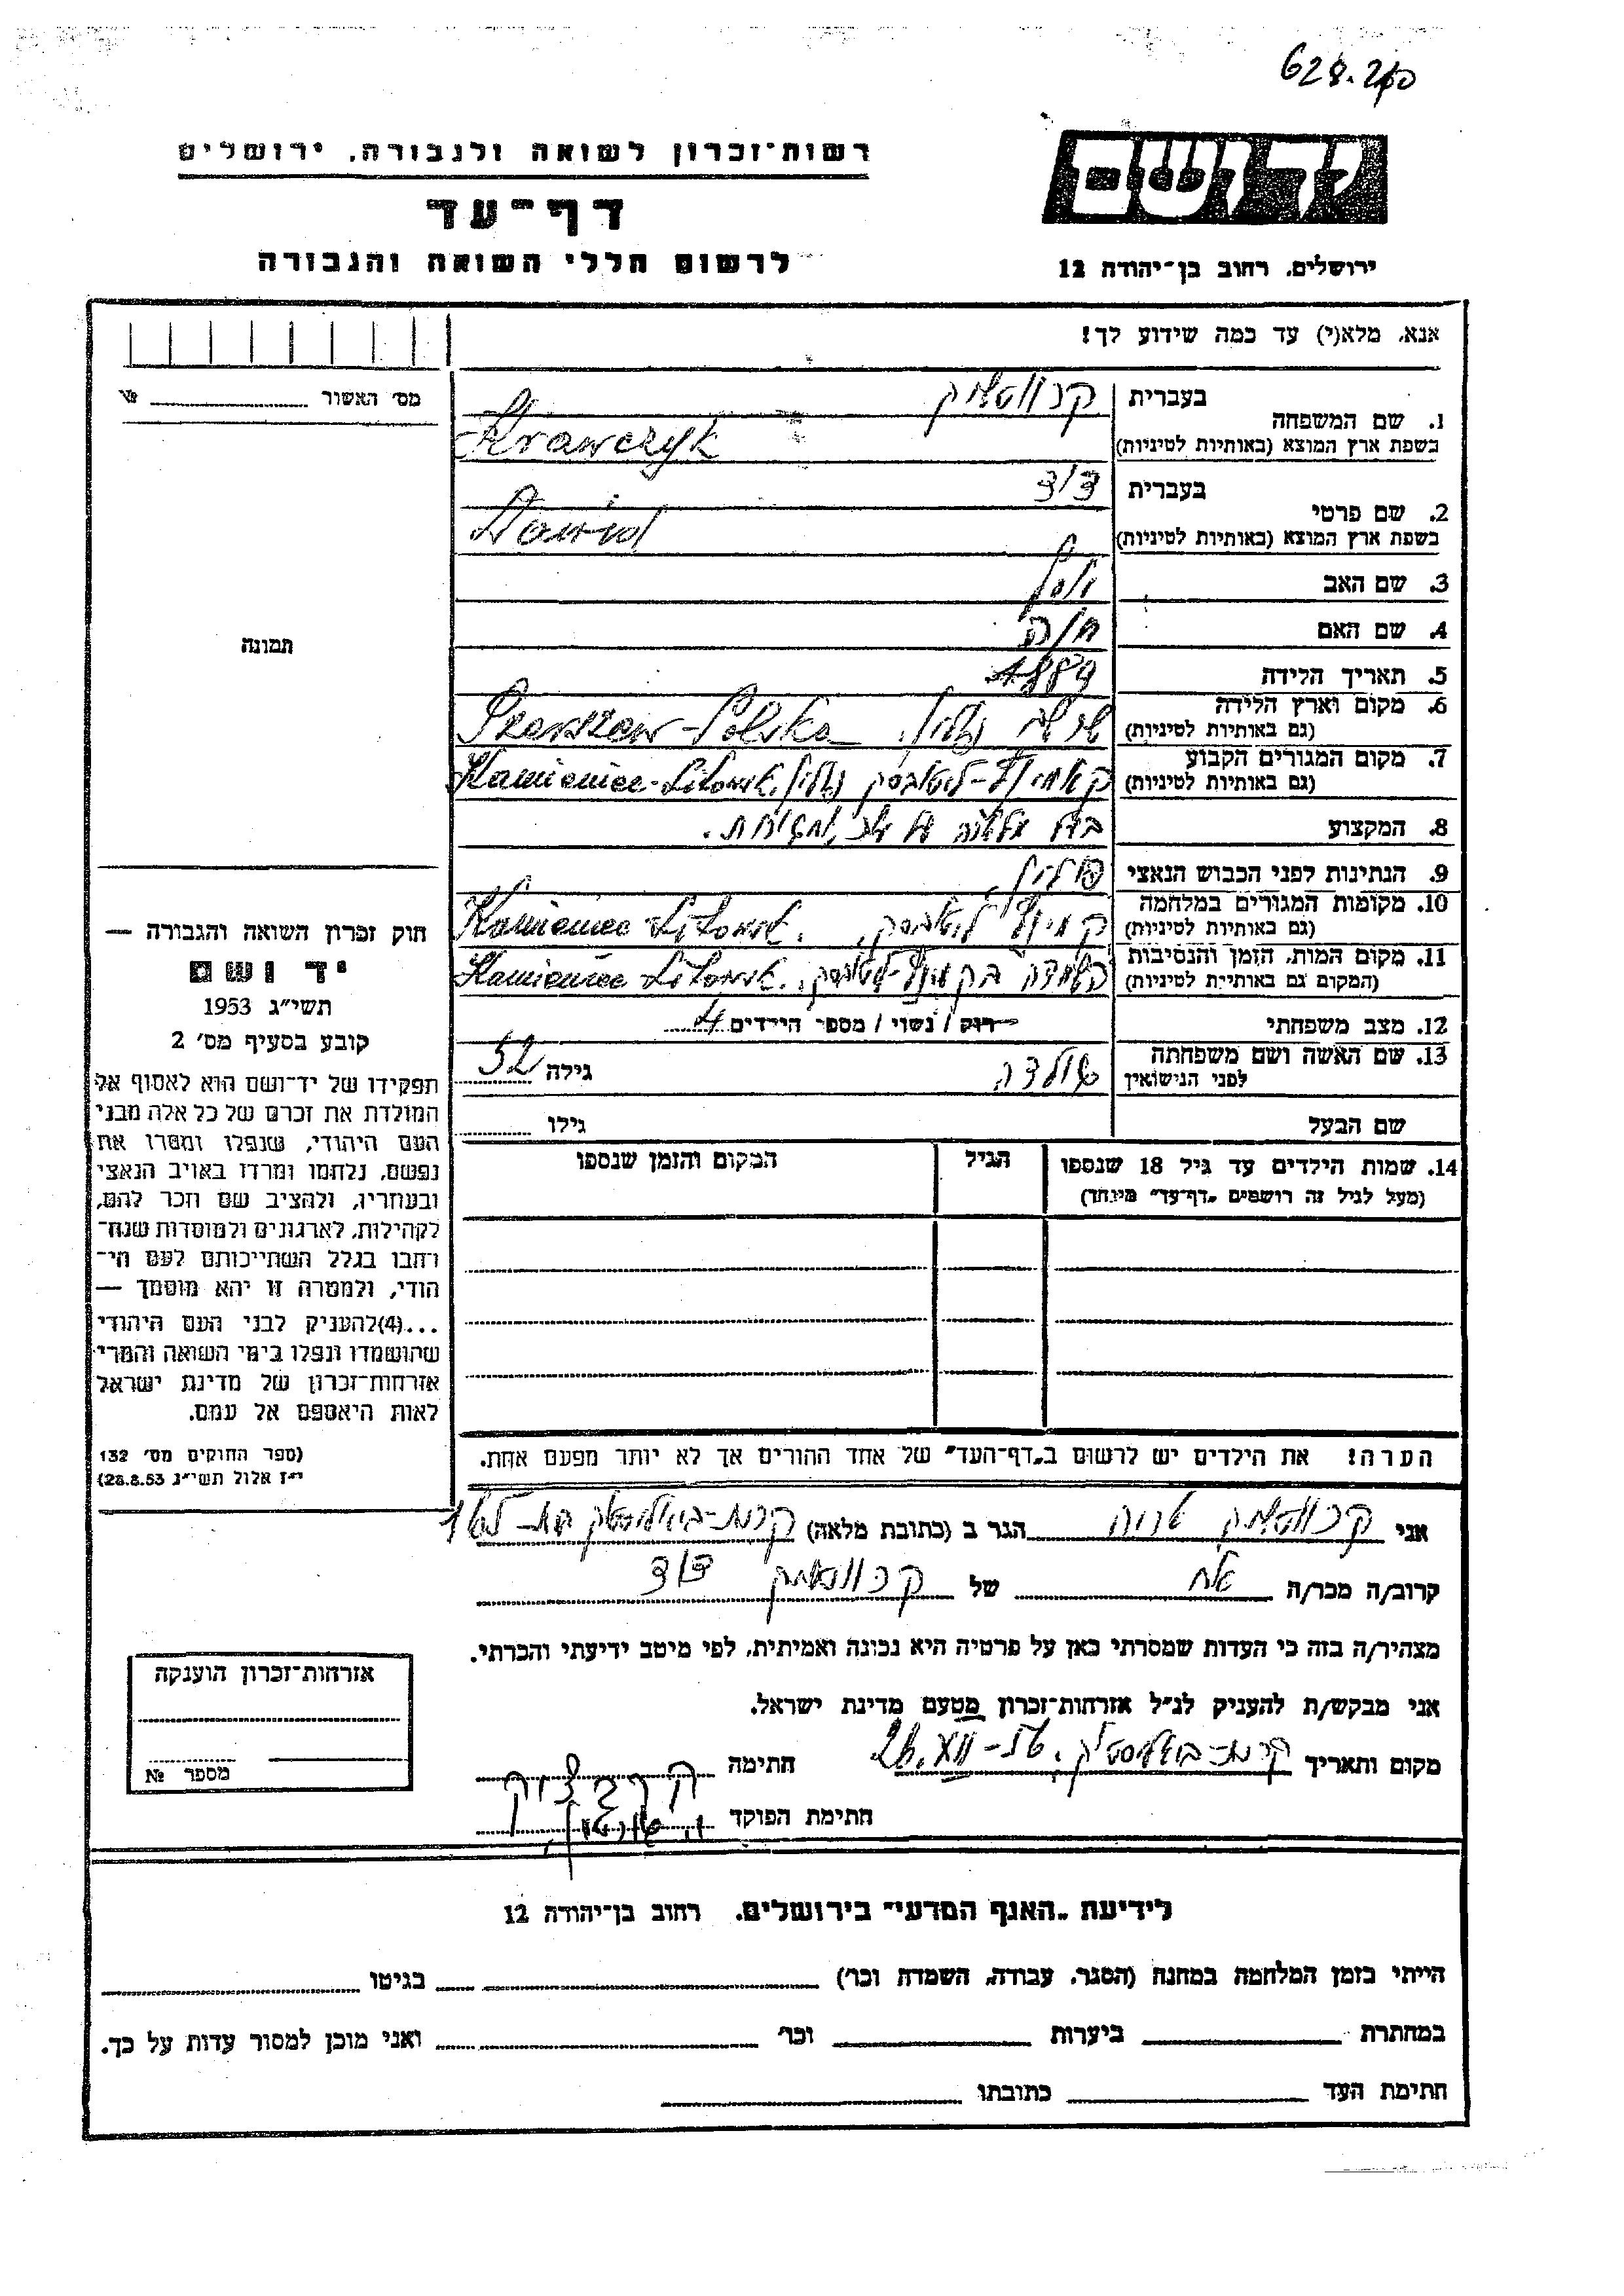 628.240
רשות־זכרון לשואה ולגבורה, ירושלים
דף־עד
לרשום חללי השואה והגבורה
יד ושם
ירושלים, רחוב בן־יהודה 12
אנא, מלא(י) עד כמה שידוע לך!
מס׳ האשור № 
1. שם המשפחה
בעברית
בשפת ארץ המוצא (באותיות לטיניות)
Krawczyk
2. שם פרטי
בעברית דוד
בשפת ארץ המוצא (באותיות לטיניות)
Dawid
3. שם האב
4. שם האם חוה
5. תאריך הלידה 1889
6. מקום וארץ הלידה
(גם באותיות לטיניות) Polska
7. מקום המגורים הקבוע
(גם באותיות לטיניות) Kamieniec-Litowsk
8. המקצוע
9. הנתינות לפני הכבוש הנאצי פולין
10. מקומות המגורים במלחמה
(גם באותיות לטיניות) Kamieniec Litowsk
11. מקום המות, הזמן והנסיבות
(המקום גם באותיית לטיניות) Kamieniec Litowsk
12. מצב משפחתי רוק / נשוי / מספר הילדים 4
13. שם האשה ושם משפחתה
לפני הנישואין גילה 52
שם הבעל גילו
14. שמות הילדים עד גיל 18 שנספו
(מעל לגיל זה רושמים „דף־עד״ מיוחד)
הגיל
המקום והזמן שנספו
הערה! את הילדים יש לרשום ב„דף־העד״ של אחד ההורים אך לא יותר מפעם אחת.
תמונה
חוק זכרון השואה והגבורה —
יד ושם
תשי״ג 1953
קובע בסעיף מס׳ 2
תפקידו של יד־ושם הוא לאסוף אל
המולדת את זכרם של כל אלה מבני
העם היהודי, שנפלו ומסרו את
נפשם, נלחמו ומרדו באויב הנאצי
ובעוזריו, ולהציב שם וזכר להם,
לקהילות, לארגונים ולמוסדות שנח־
רחבו בגלל השתייכותם לעם הי־
הודי, ולמטרה זו יהא מוסמך —
...(4)להעניק לבני העם היהודי
שהושמדו ונפלו בימי השואה והמרי
אזרחות־זכרון של מדינת ישראל
לאות היאספם אל עמם.
(ספר החוקים מס׳ 132
י״ז אלול תשי״ג 28.8.53)
אני הגר ב (כתובת מלאה)
קרוב/ה מכר/ה אח של דוד
מצהיר/ה בזה כי העדות שמסרתי כאן על פרטיה היא נכונה ואמיתית, לפי מיטב ידיעתי והכרתי.
אני מבקש/ת להעניק לנ״ל אזרחות־זכרון מטעם מדינת ישראל.
מקום ותאריך חתימה
חתימת הפוקד
אזרחות־זכרון הוענקה
מספר №
לידיעת „האגף המדעי״ בירושלים, רחוב בן־יהודה 12
הייתי בזמן המלחמה במחנה (הסגר, עבודה, השמדה וכו׳) בגיטו
במחתרת ביערות וכו׳ ואני מוכן למסור עדות על כך.
חתימת העד כתובתו